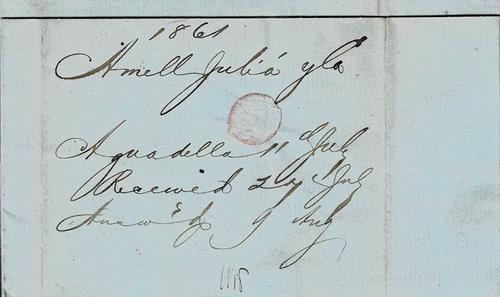 1861
Amell Juliá y Co
Aguadella 11 July
Received 27 July
Answ'd 9 Aug